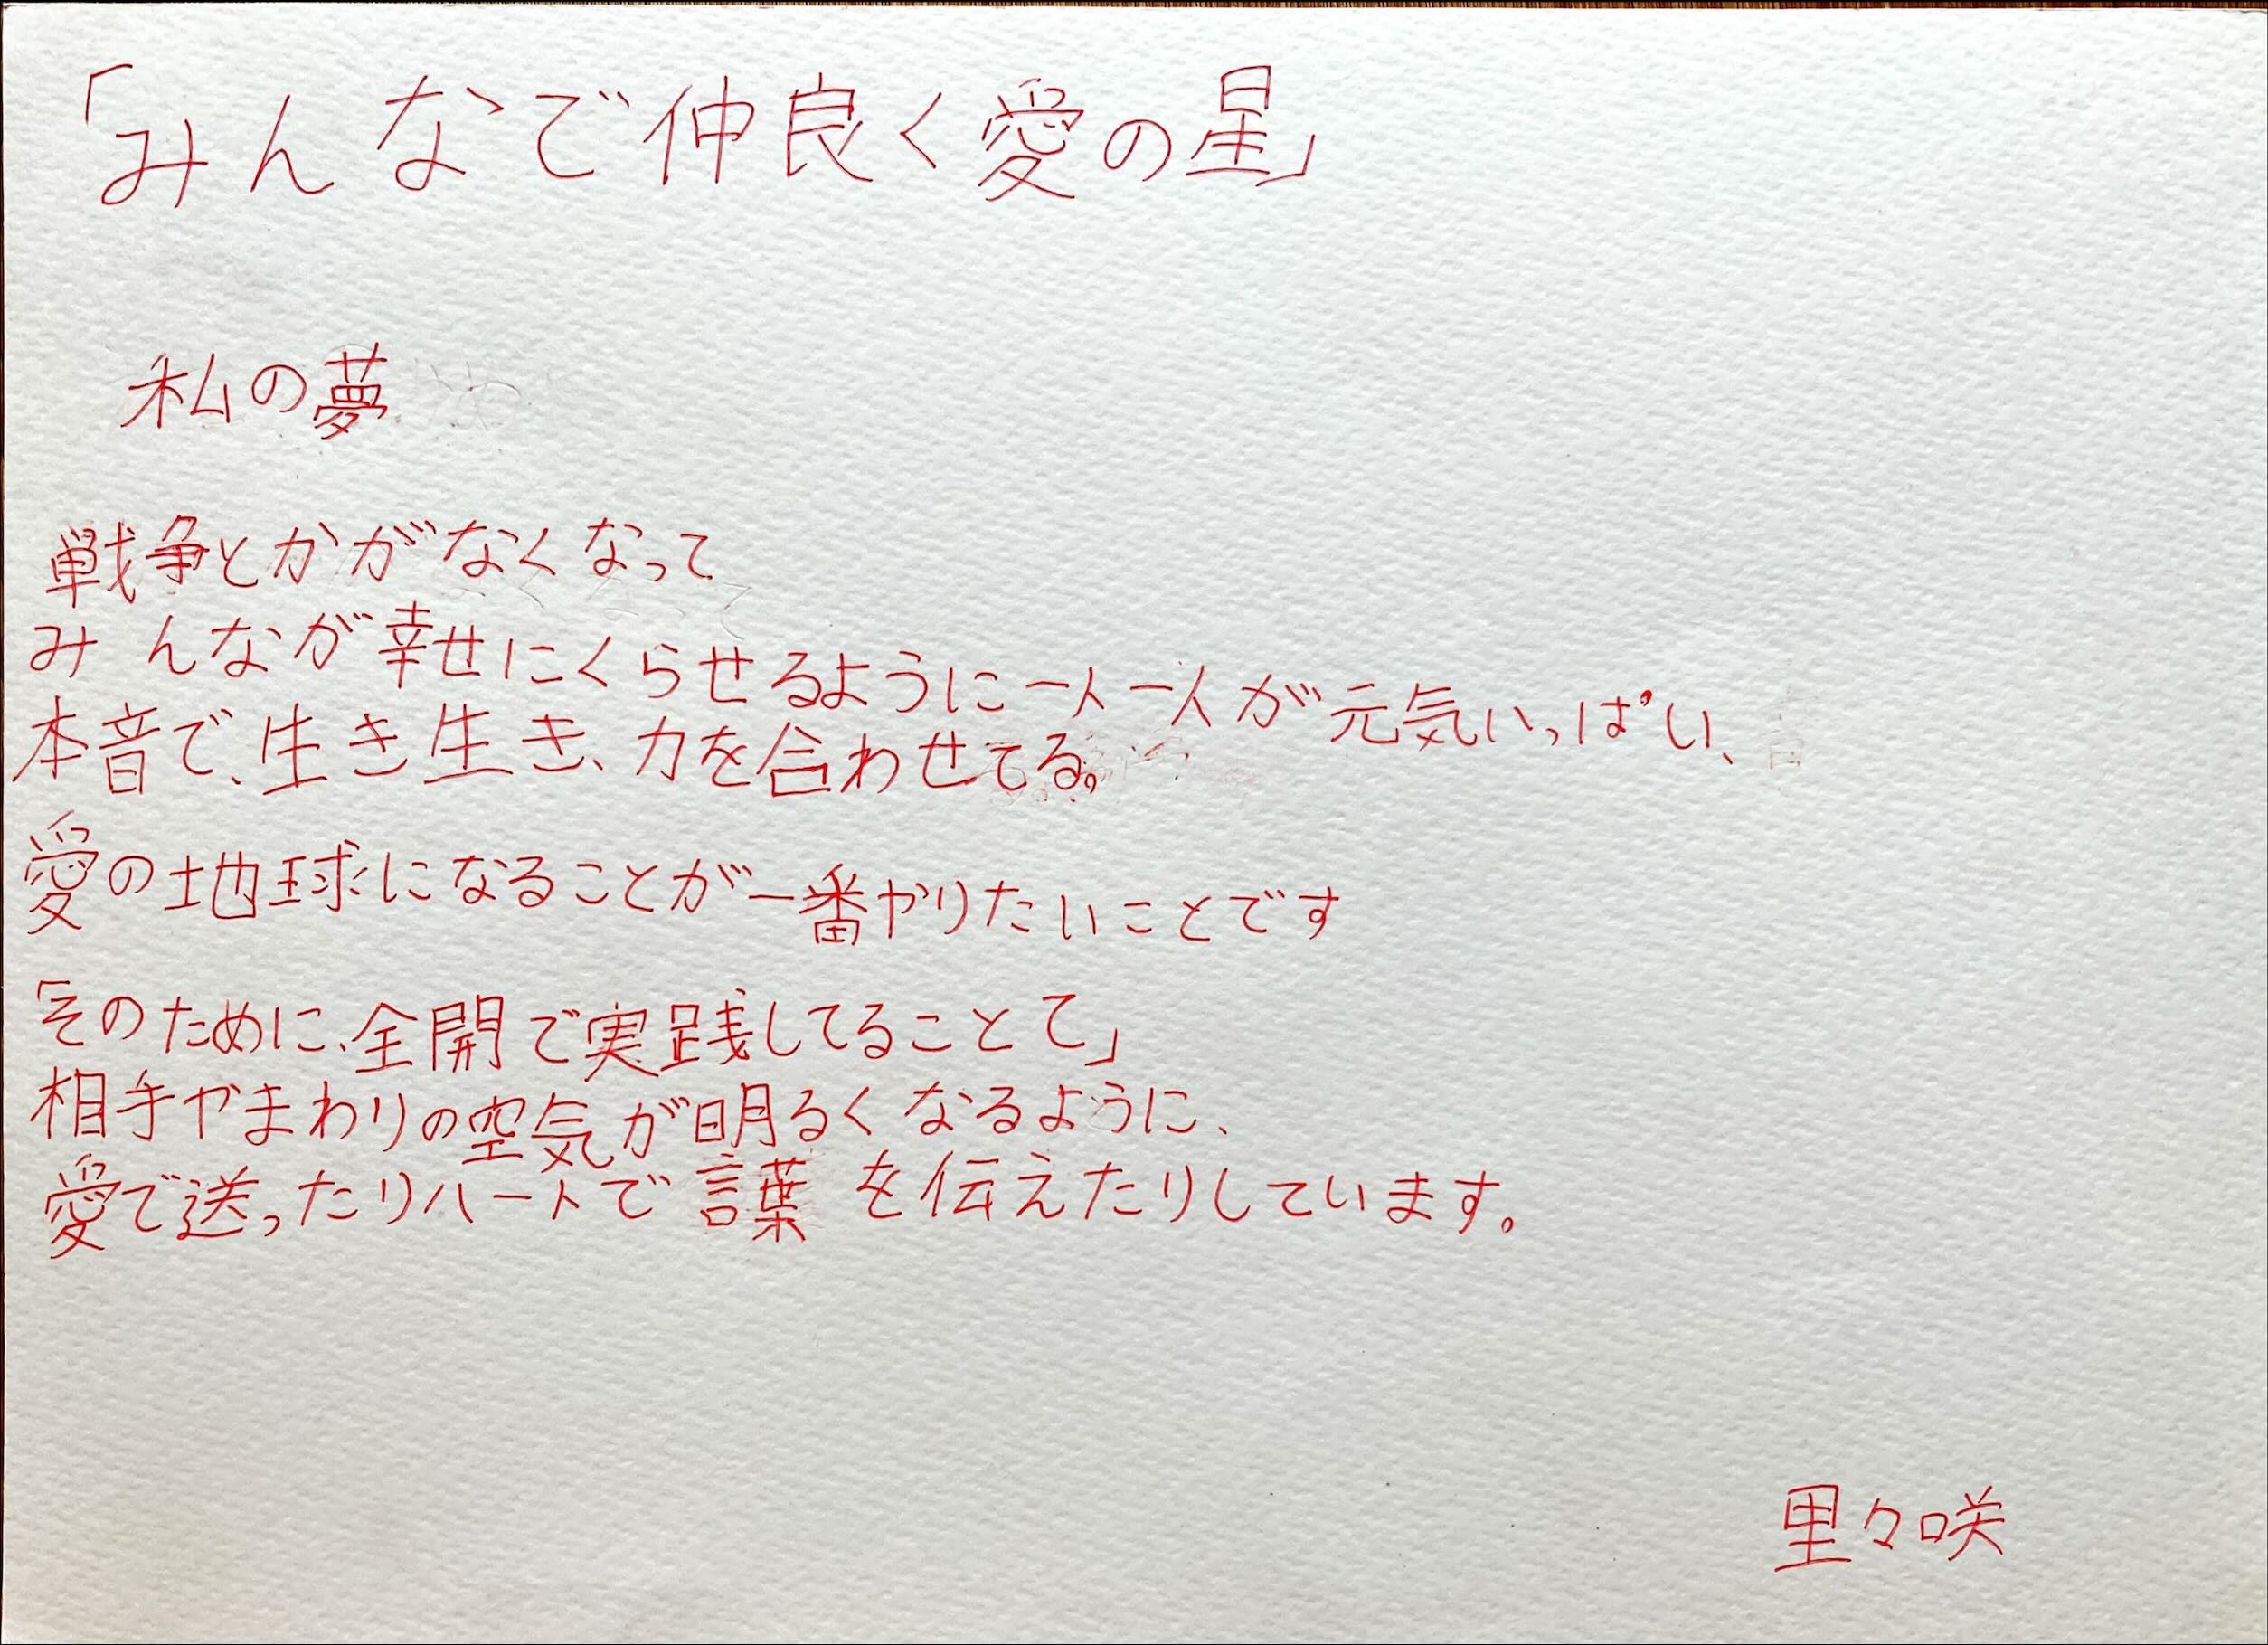 「みんなで仲良く愛の星」
私の夢
戦争とかがなくなって
みんなが幸せにくらせるように一人一人が元気いっぱい、
本音で、生き生き、力を合わせてる。
愛の地球になることが一番やりたいことです
「そのために、全開で実践してることて」
相手やまわりの空気が明るくなるように、
愛で送ったりハートで言葉を伝えたりしています。
里々咲